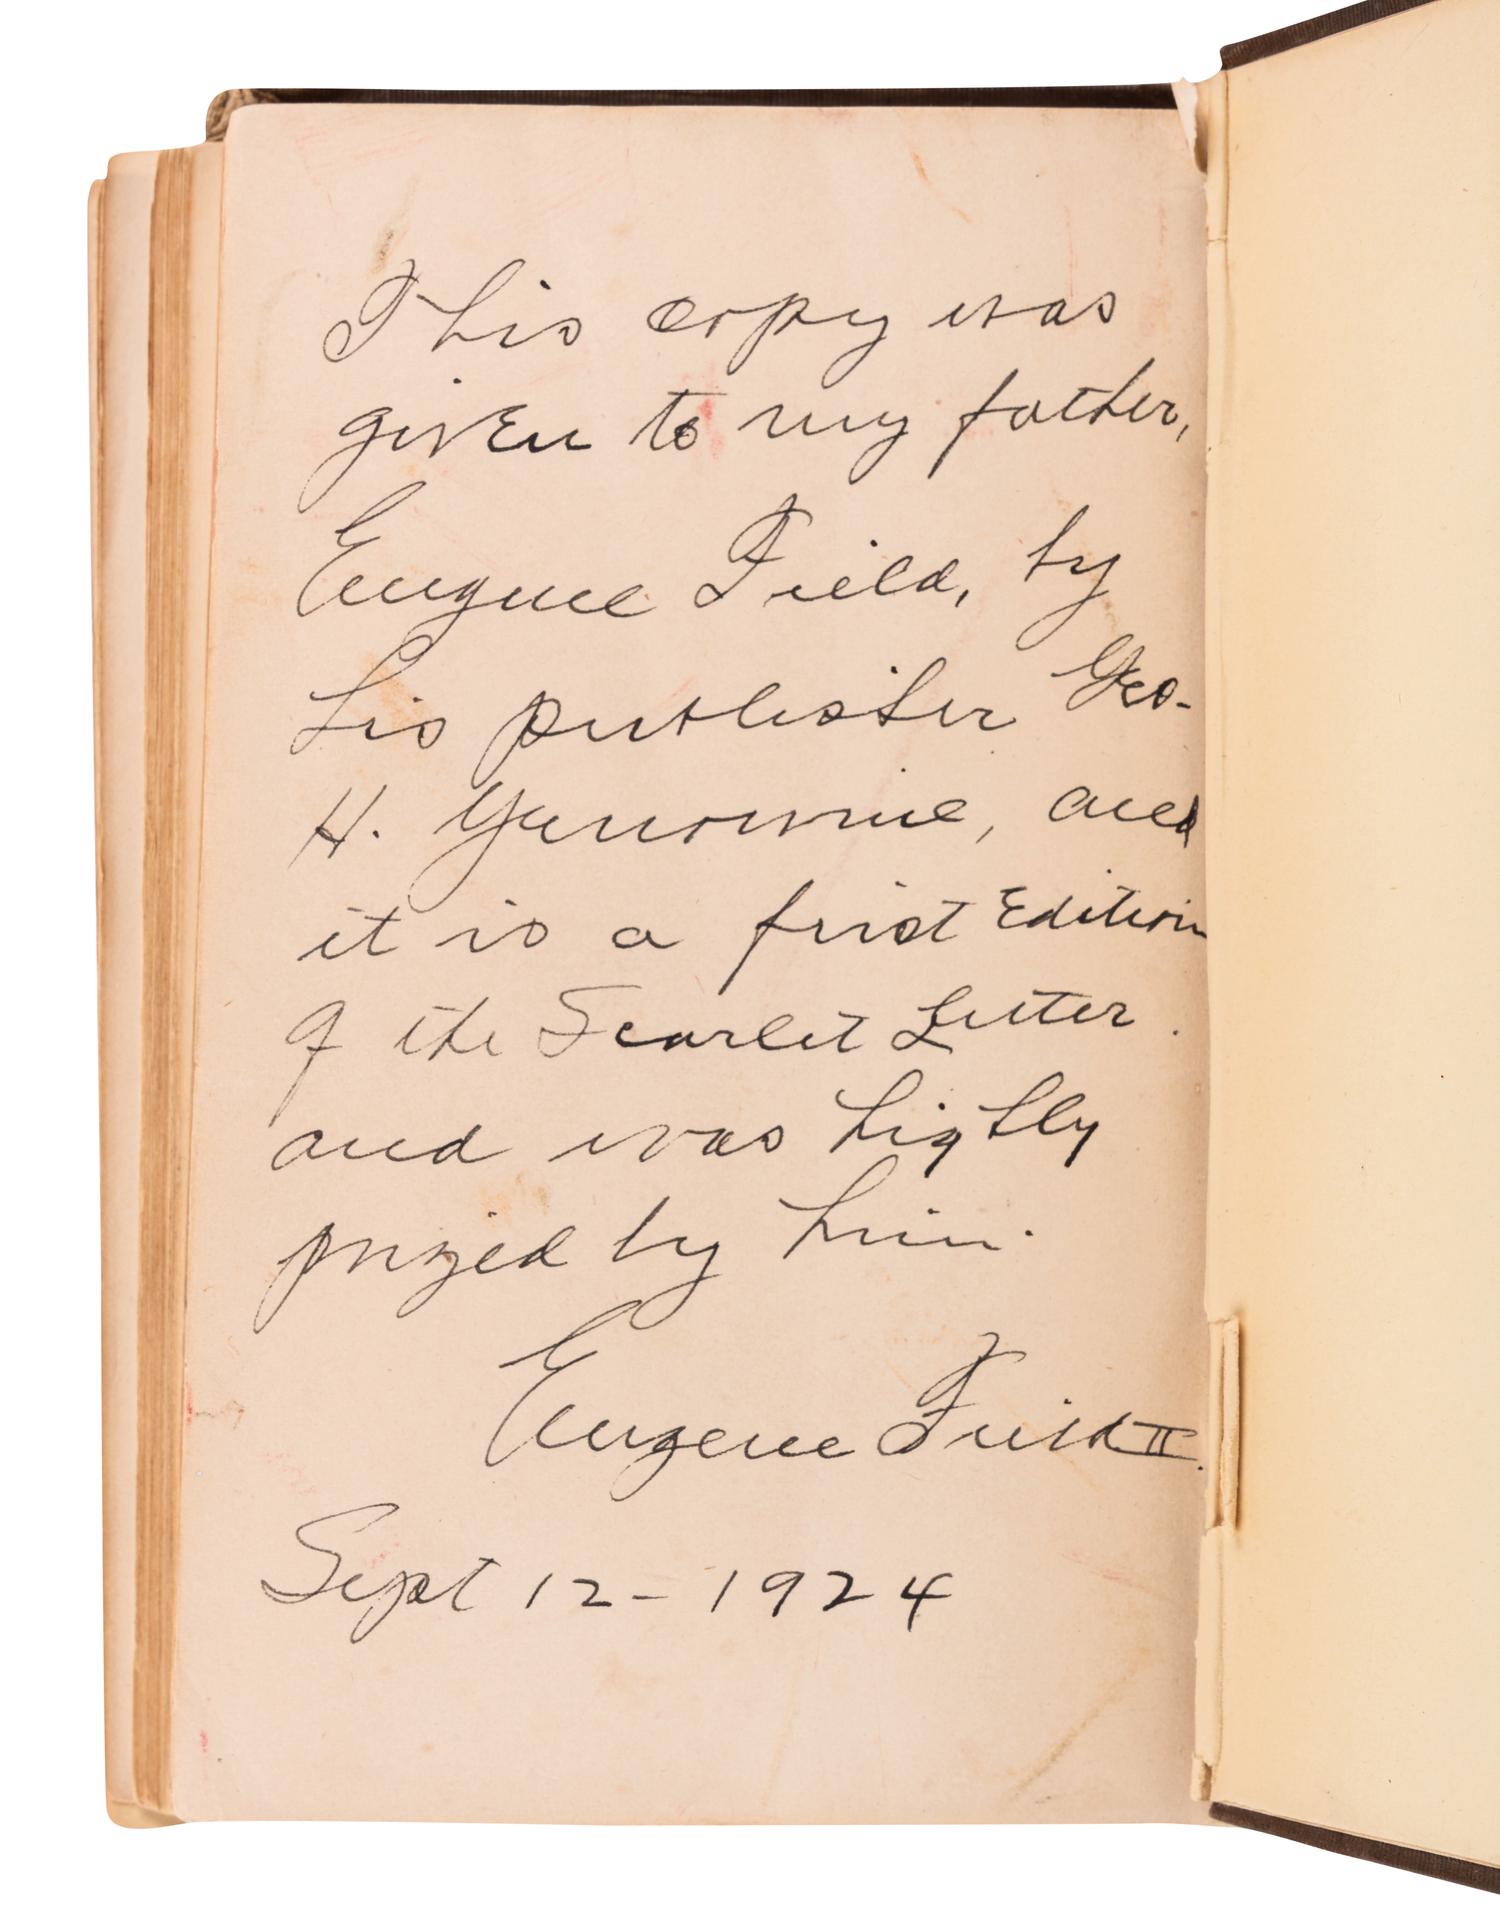 This copy was
given to my father,
Eugene Field, by
his publisher Geo.
H. Yenowine, and
it is a first Edition
of the Scarlet Letter.
and was highly
prized by him.
Eugene Field II.
Sept 12 - 1924